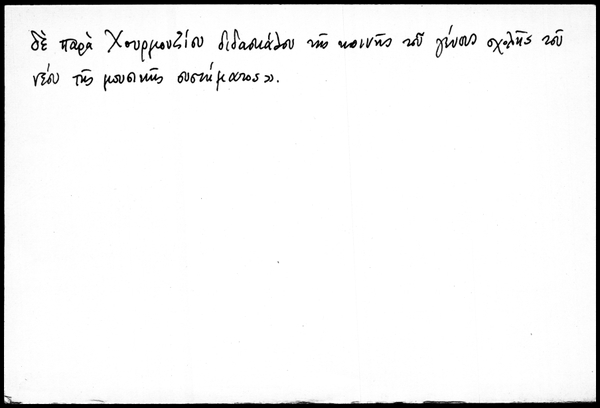 δὲ παρὰ Χουρμουζίου διδασκάλου τῆς κοινῆς τοῦ γένους σχολῆς τοῦ
νέου τῆς μουσικῆς συστήματος».